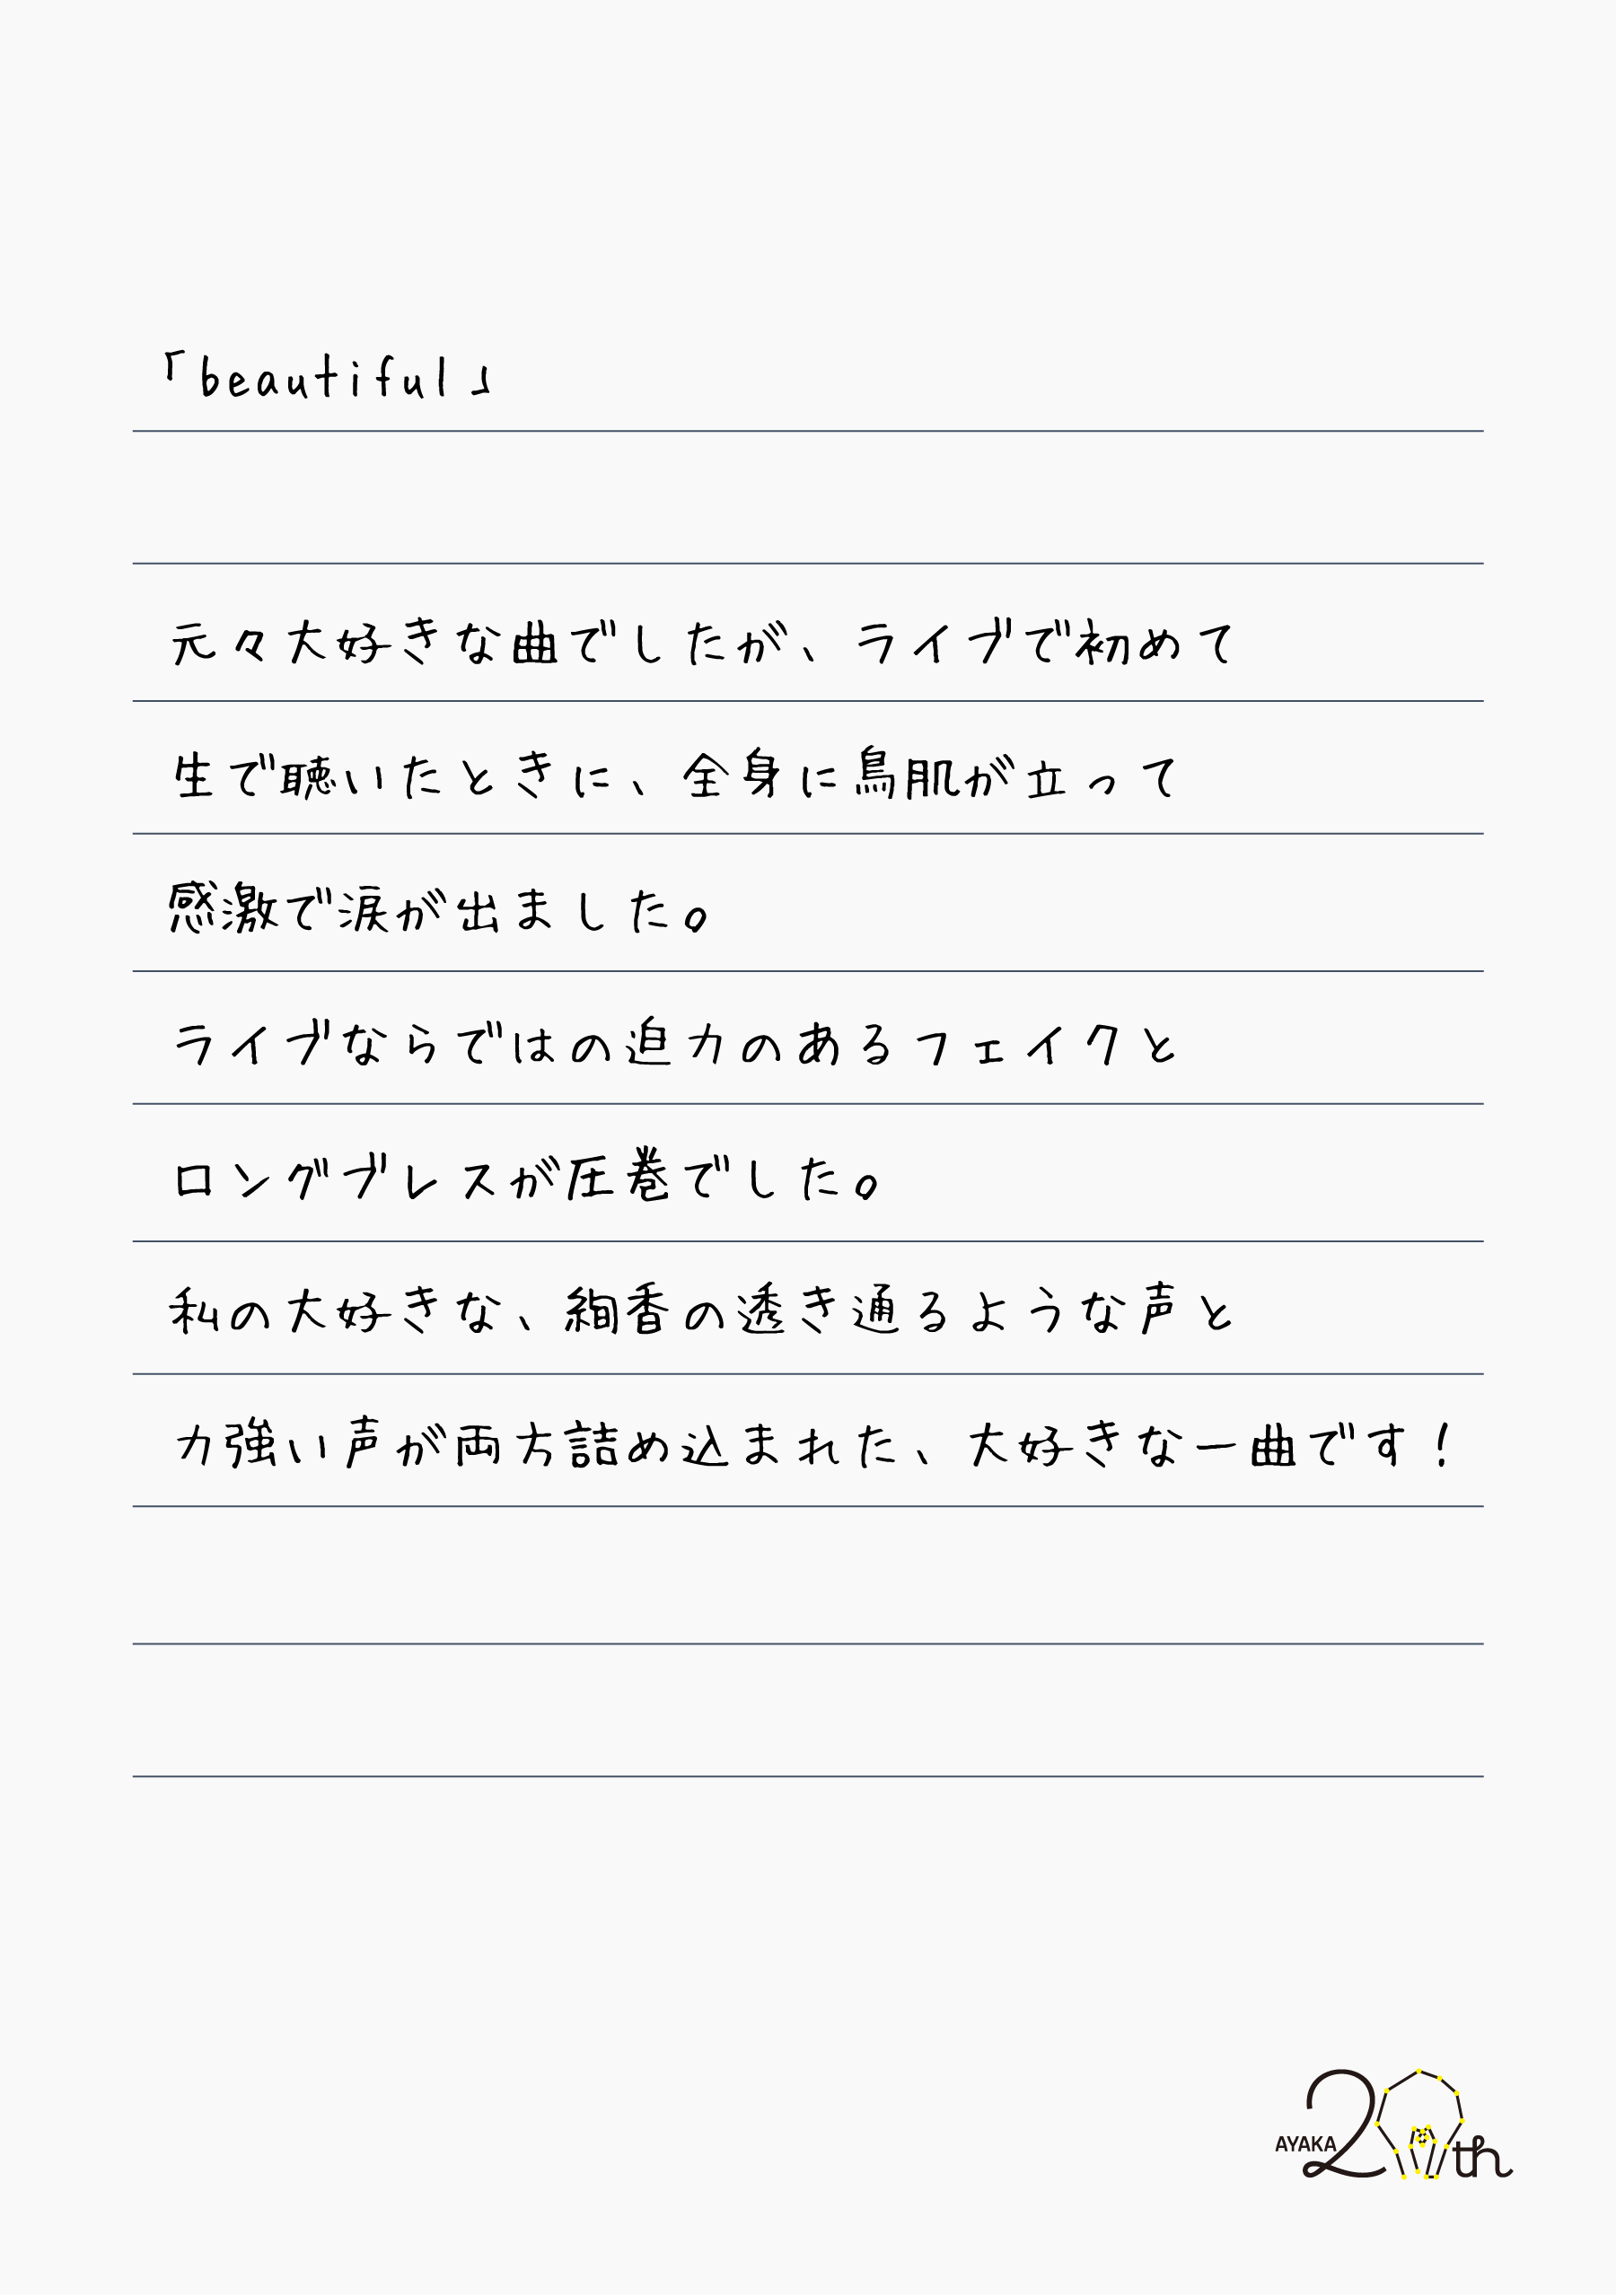 「beautiful」
元々大好きな曲でしたが、ライブで初めて
生で聴いたときに、全身に鳥肌が立って
感激で涙が出ました。
ライブならではの迫力のあるフェイクと
ロングブレスが圧巻でした。
私の大好きな、絢香の透き通るような声と
力強い声が両方詰め込まれた、大好きな一曲です！
AYAKA 20th